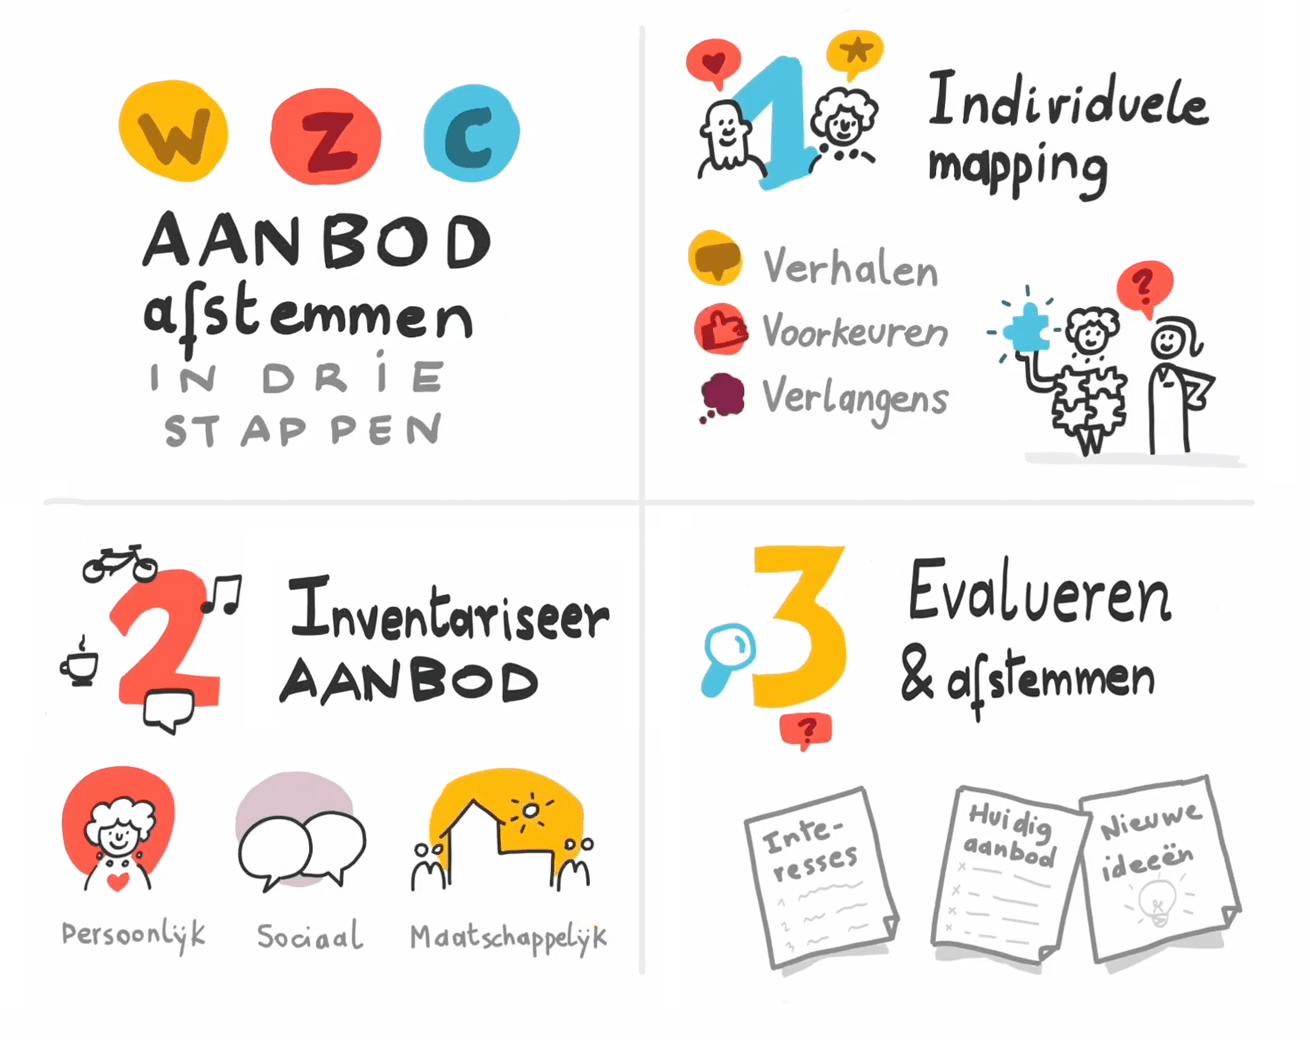 W Z C
AANBOD
afstemmen
IN DRIE
STAPPEN
1
Individuele
mapping
Verhalen
Voorkeuren
?
Verlangens
2
Inventariseer
AANBOD
Persoonlijk
Sociaal
Maatschappelijk
3
Evalueren
& afstemmen
?
Inte-
resses
1
2
3
Huidig
aanbod
x
x
x
x
Nieuwe
ideeën